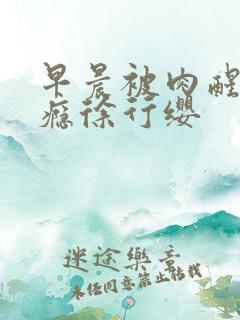 早晨被肉醒
瘾徐行缨
迷途乐章
未经同意禁止转载